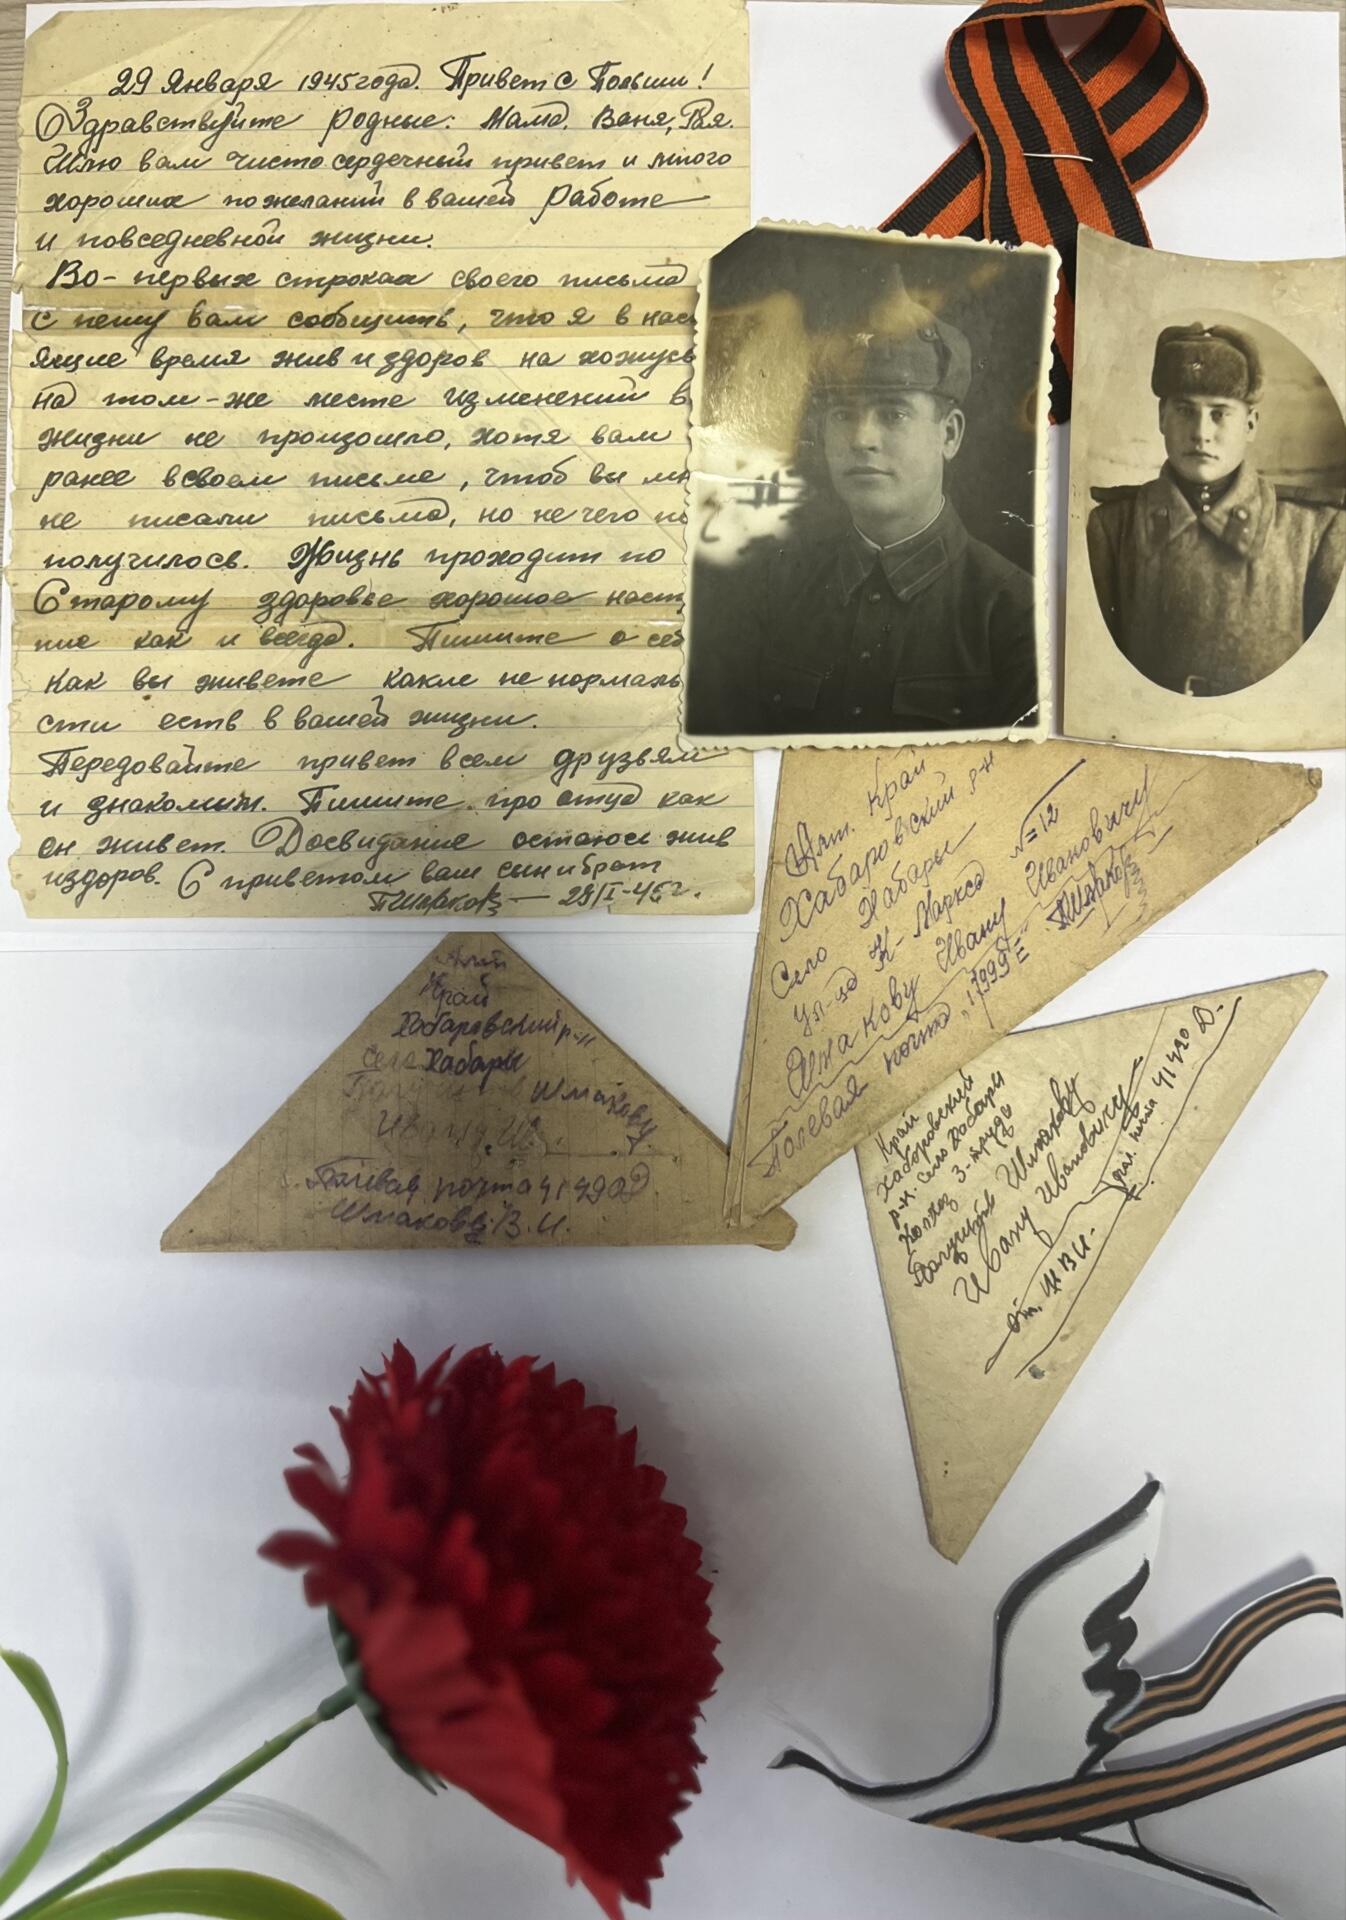 29 Января 1945 года. Привет с Польши!
Здравствуйте родные: Мама, Ваня, Рая.
Шлю вам чисто сердечный привет и много
хороших пожеланий в вашей работе
и повседневной жизни.
Во-первых строках своего письма
спешу вам сообщить, что я в нас
ящие время жив и здоров на хожусь
на том-же месте изменений в
жизни не произошло, хотя вам
ранее всвоем письме, чтоб вы мн
не писали письма, но не чего
получилось. Жизнь проходит по
Старому здоровье хорошое наст
ние как и всегда. Пишите о себ
как вы живете какие не нормаль
сти есть в вашей жизни.
Передовайте привет всем друзьям
и знакомым. Пишите про отца как
он живет. Досвидание остаюсь жив
издоров. С приветом ваш сын и брат
ПШмаков — 29/I-45г.
Алт. Край
Хабаровский р-н
Село Хабары
ул-ца К-Маркса №=12
Шмакову Ивану Ивановичу
Полевая почта
ПШмаков
Алт
Край
Хабаровский р-н
Село Хабары
Шмакову
Ивану. Ив.
Полевая почта 41490Д
Шмаков В. И.
Край
Хабаровский
р-н. село Хабары
Колхоз
Получить Шмакову
Ивану Ивановичу
от. Ш В И.
почта 41490 Д-